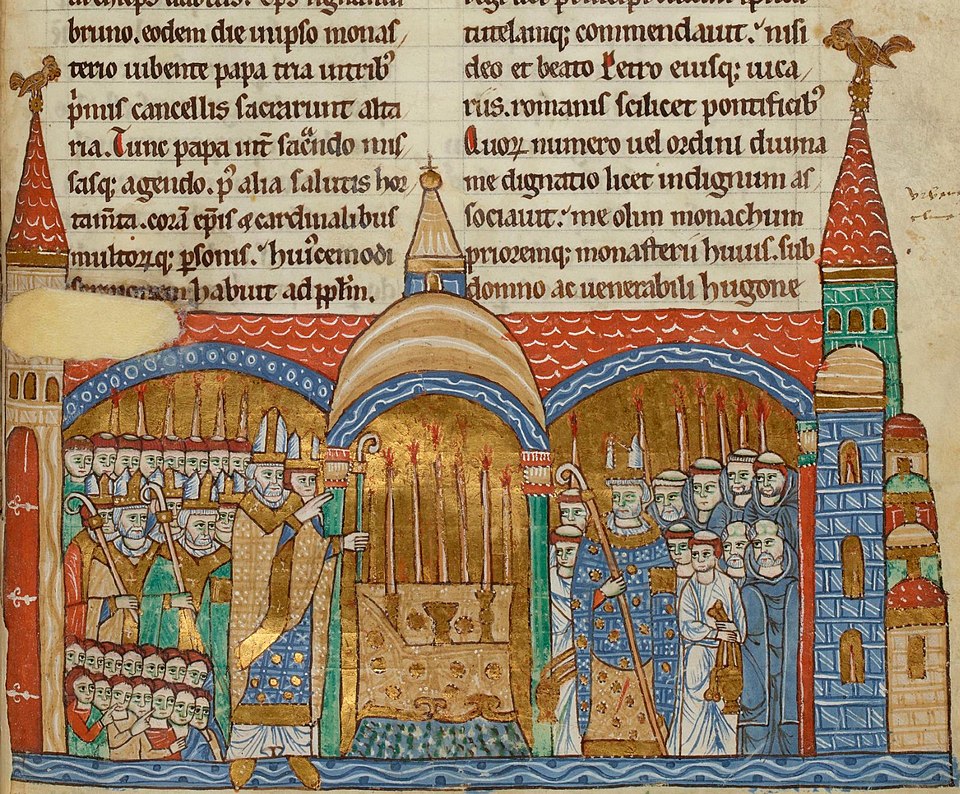 bruno. eodem die in ipso monas
terio iubente papa tria in tribꝰ
pͥmis cancellis sacrarunt alta
ria. Tunc papa int̄ sac̄ndo mis
sasq; agendo. p̄ alia salutis hor
tam̄ta. corā ep̄is & cardinalibus
multoꝝq; ꝑsonis. huiꝰcemodi
sermonem habuit ad pplm̄.
tutelamq; commendauit. nisi
deo et beato Petro eiusq; uica
riis. romanis scilicet pontificibꝰ
Quoꝝ numero uel ordini diuina
me dignatio licet indignum as
sociauit. me olim monachum
prioremq; monasterii huius. sub
domno ac uenerabili hugone